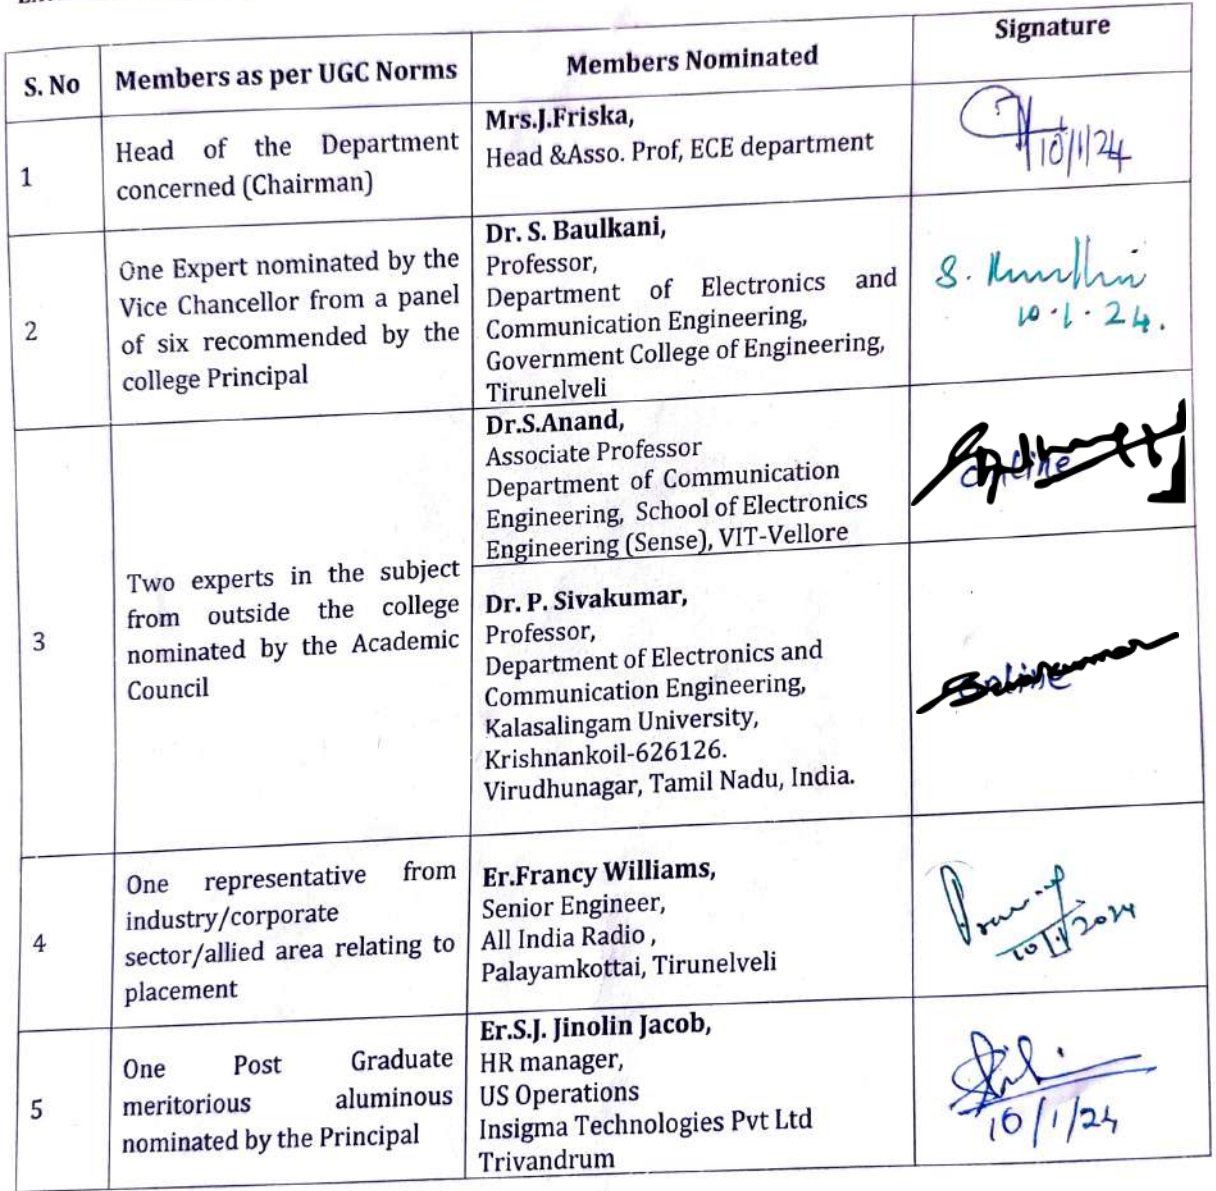 S. No
Members as per UGC Norms
Members Nominated
Signature
1
Head of the Department
concerned (Chairman)
Mrs.J.Friska,
Head &Asso. Prof, ECE department
10/1/24
2
One Expert nominated by the
Vice Chancellor from a panel
of six recommended by the
college Principal
Dr. S. Baulkani,
Professor,
Department of Electronics and
Communication Engineering,
Government College of Engineering,
Tirunelveli
S.
10.1.24.
3
Two experts in the subject
from outside the college
nominated by the Academic
Council
Dr.S.Anand,
Associate Professor
Department of Communication
Engineering, School of Electronics
Engineering (Sense), VIT-Vellore
online
Dr. P. Sivakumar,
Professor,
Department of Electronics and
Communication Engineering,
Kalasalingam University,
Krishnankoil-626126.
Virudhunagar, Tamil Nadu, India.
online
4
One representative from
industry/corporate
sector/allied area relating to
placement
Er.Francy Williams,
Senior Engineer,
All India Radio ,
Palayamkottai, Tirunelveli
10/1/2024
5
One Post Graduate
meritorious aluminous
nominated by the Principal
Er.S.J. Jinolin Jacob,
HR manager,
US Operations
Insigma Technologies Pvt Ltd
Trivandrum
10/1/24